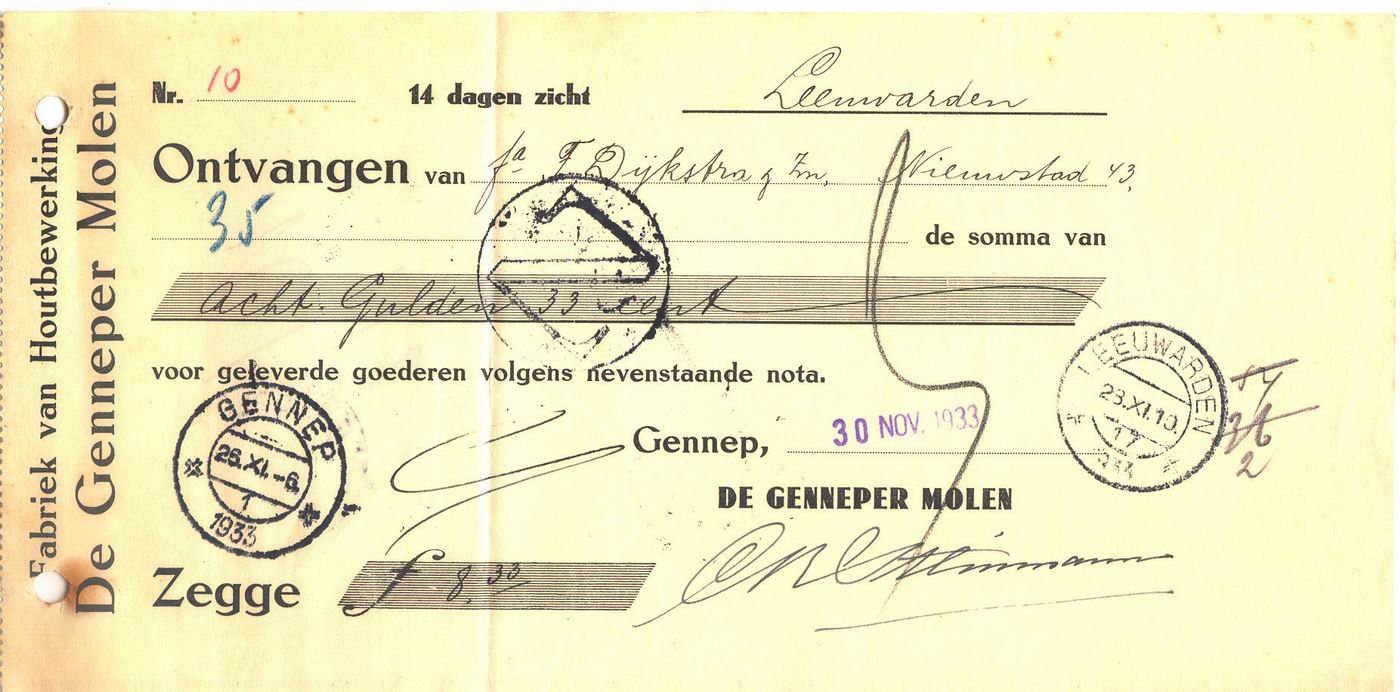 Fabriek van Houtbewerking
De Genneper Molen
Nr. 10 14 dagen zicht Leeuwarden
Ontvangen van fa T. Dijkstra & Zn. Nieuwstad 43,
35 de somma van
Acht Gulden 33 cent
voor geleverde goederen volgens nevenstaande nota.
GENNEP
26.XI.-6.
1
1933
LEEUWARDEN
17
Gennep, 30 NOV. 1933
DE GENNEPER MOLEN
Zegge f 8.33